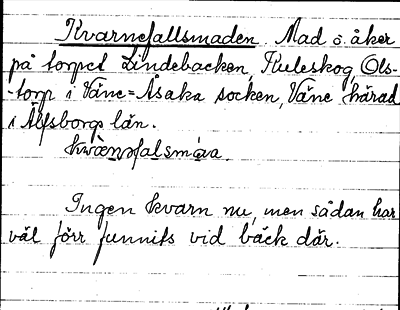 Kvarnefallsmaden. Mad o. åker
på torpet Lindebacken, Kuleskog, Ols-
-torp i Väne=Åsaka socken, Väne härad
i Älfsborgs län.
Ingen kvarn nu, men sådan har
väl förr funnits vid bäck där.